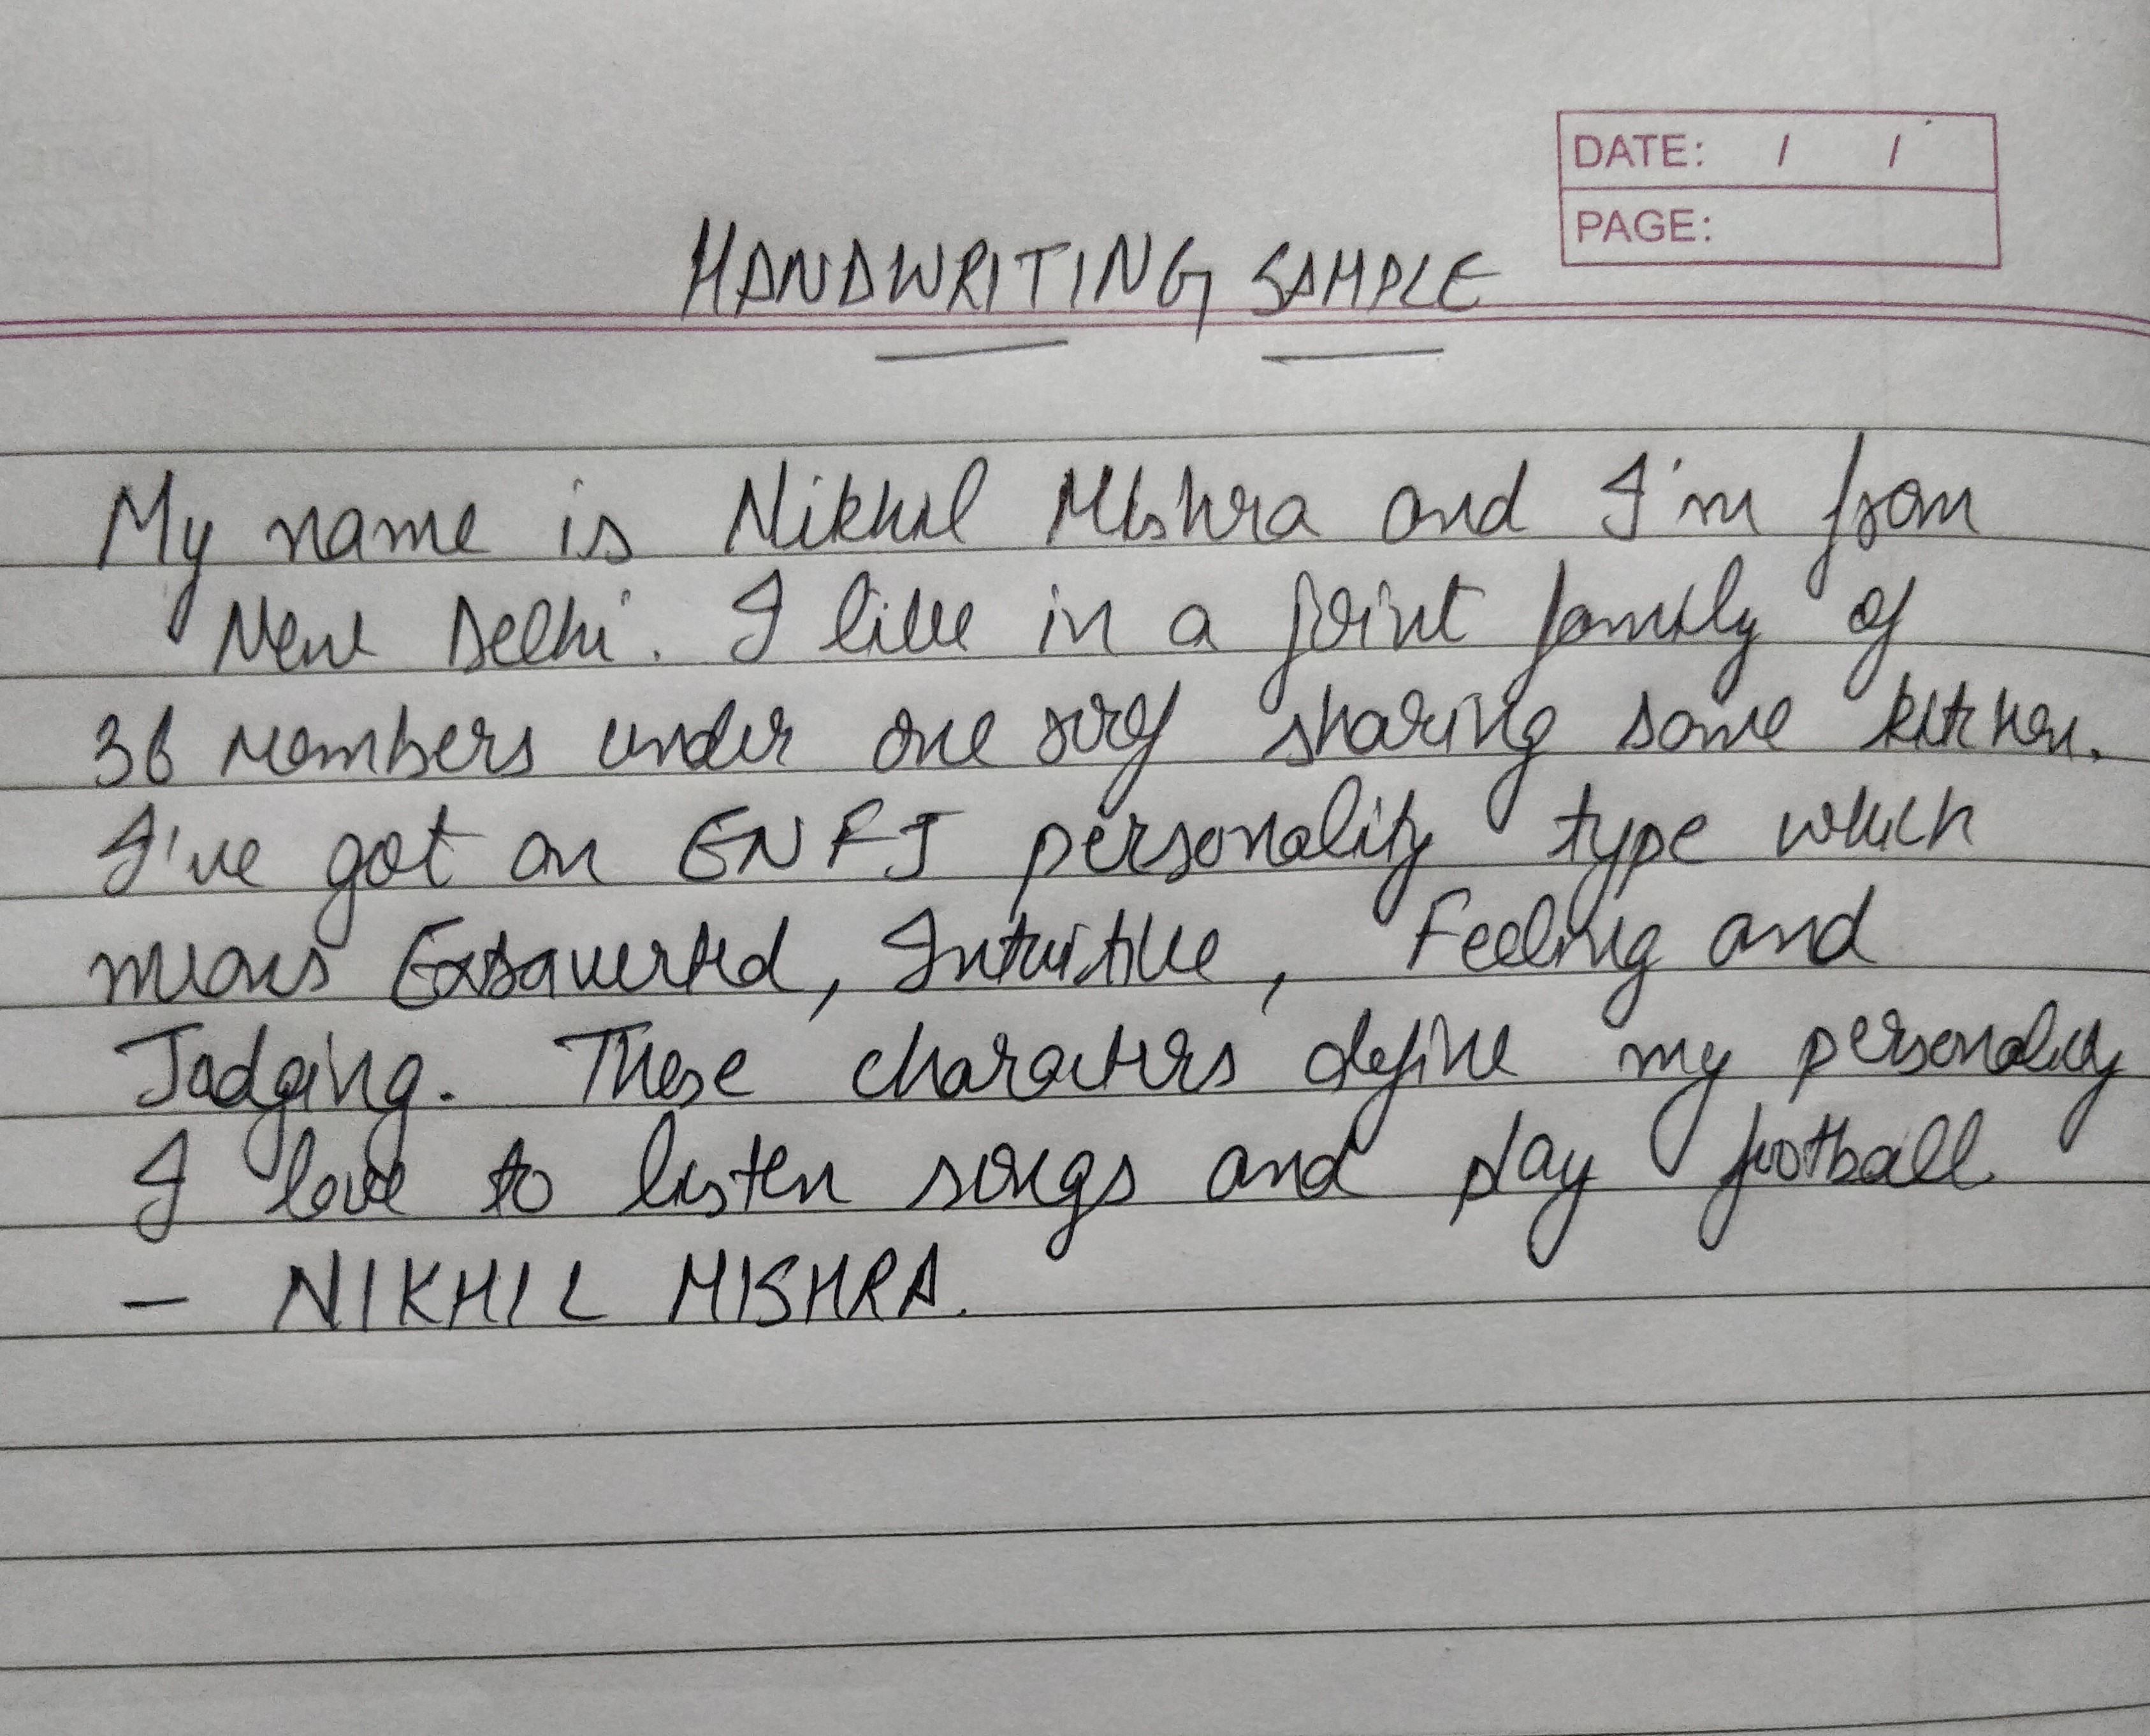 DATE: / /
PAGE:
HANDWRITING SAMPLE
My name is Nikhil Mishra and I'm from
New Delhi. I live in a joint family of
36 members under one roof sharing same kitchen.
I've got an ENFJ personality type which
means Extraverted, Intuitive, Feeling and
Jadging. These characters define my personality
I love to listen songs and play football
– NIKHIL MISHRA.